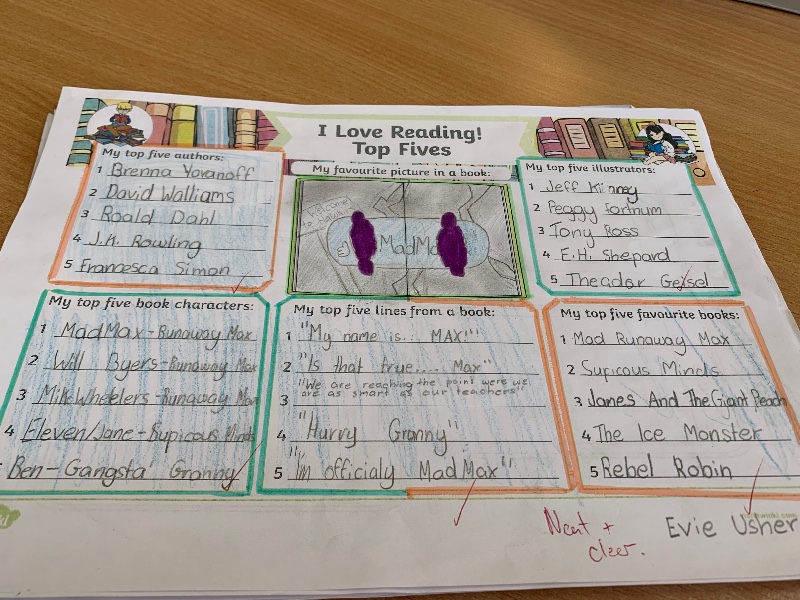 I Love Reading!
Top Fives
My top five authors:
1 Brenna Yovanoff
2 David Walliams
3 Roald Dahl
4 J.K. Rowling
5 Francesca Simon
My favourite picture in a book:
MadMa
My top five illustrators:
1 Jeff Kinney
2 Peggy Fortnum
3 Tony Ross
4 E.H. Shepard
5 Theodor Geisel
My top five book characters:
1 MadMax-Runaway Max
2 Will Byers-Runaway Max
3 MikeWheelers-Runaway Max
4 Eleven/Jane-Supicous Minds
Ben-Gangsta Granny
My top five lines from a book:
1 "My name is... MAX!"
2 "Is that true.... Max"
"We are reaching the point were we
3 are as smart as our teachers"
4 "Hurry Granny"
5 "Im officialy MadMax"
My top five favourite books:
1 Mad Runaway Max
2 Supicous Minds
3 James And The Giant Peach
4 The Ice Monster
5 Rebel Robin
Neat +
clear.
Evie Usher